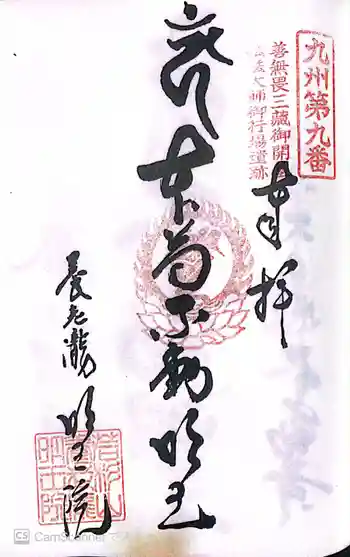 九州第九番
善無畏三藏御開
弘法大師御行場遺跡
奉拝
本尊不動明王
養老瀧 明王院
CS CamScanner で